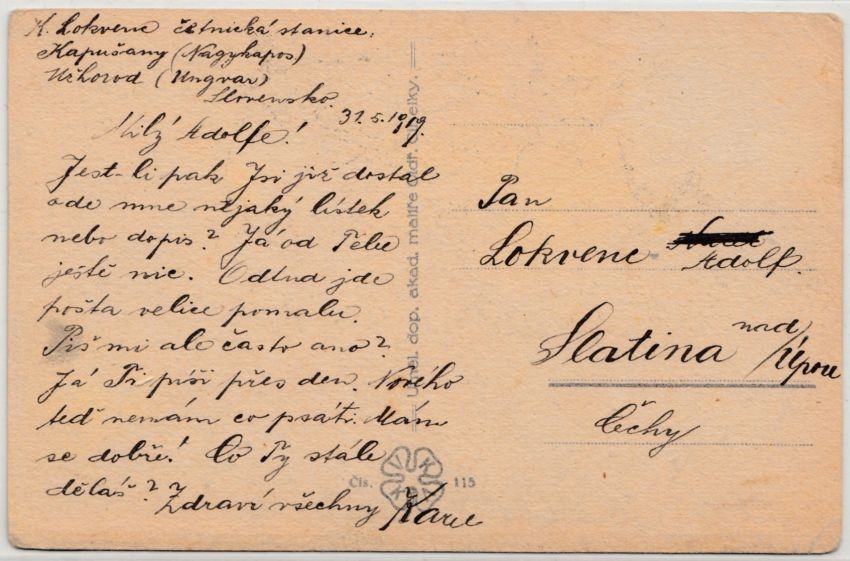 K. Lokvenc četnická stanice,
Kapušany (Nagykapos)
Užhorod (Ungvar)
Slovensko.
31.5.1919.
Milý Adolfe!
Jest-li pak Jsi již dostal
ode mne nějaký lístek
nebo dopis? Já od Tebe
ještě nic. Odtud jde
pošta velice pomalu.
Piš mi ale často ano?
Já Ti píši přes den. Nového
teď nemám co psáti. Mám
se dobře! Co Ty stále
děláš? Zdraví všechny Karel
Uměl. dop. akad. malíře
Čís. 115
Pan
Lokvenc
Adolf.
Slatina nad
Úpou
Čechy